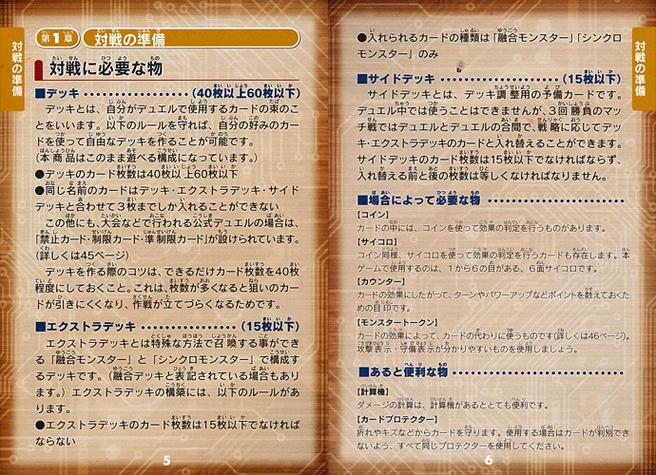 対戦の準備
第1章 対戦の準備
対戦に必要な物
■デッキ ・・・・・・・・・・・・・・・・・・・ (40枚以上60枚以下)
デッキとは、自分がデュエルで使用するカードの束のこ
とをいいます。以下のルールを守れば、自分の好みのカー
ドを使って自由なデッキを作ることが可能です。
(本商品はこのまま遊べる構成になっています。)
●デッキのカード枚数は40枚以上60枚以下
●同じ名前のカードはデッキ・エクストラデッキ・サイド
デッキと合わせて3枚までしか入れることができない
この他にも、大会などで行われる公式デュエルの場合は、
「禁止カード・制限カード・準制限カード」が設けられています。
(詳しくは45ページ)
デッキを作る際のコツは、できるだけカード枚数を40枚
程度にしておくこと。これは、枚数が多くなると狙いのカー
ドが引きにくくなり、作戦が立てづらくなるためです。
■エクストラデッキ ・・・・・・・・・・・・ (15枚以下)
エクストラデッキとは特殊な方法で召喚する事ができ
る「融合モンスター」と「シンクロモンスター」で構成す
るデッキです。(融合デッキと表記されている場合もあり
ます。) エクストラデッキの構築には、以下のルールがあ
ります。
●エクストラデッキのカード枚数は15枚以下でなければ
ならない
5
●入れられるカードの種類は「融合モンスター」「シンクロ
モンスター」のみ
■サイドデッキ ・・・・・・・・・・・・・・・・ (15枚以下)
サイドデッキとは、デッキ調整用の予備カードです。
デュエル中では使うことはできませんが、3回勝負のマッ
チ戦ではデュエルとデュエルの合間で、戦略に応じてデッ
キ・エクストラデッキのカードと入れ替えることができます。
サイドデッキのカード枚数は15枚以下でなければならず、
入れ替える前と後の枚数は等しくなければなりません。
■場合によって必要な物 ・・・・・・・・・・・・・・・・・・
【コイン】
カードの中には、コインを使って効果の判定を行うものがあります。
【サイコロ】
コイン同様、サイコロを使って効果の判定を行うカードも存在します。本
ゲームで使用するのは、1から6の目がある、6面サイコロです。
【カウンター】
カードの効果にしたがって、ターンやパワーアップなどポイントを数えておくた
めの目印です。
【モンスタートークン】
カードの効果によって、カードの代わりに使うものです(詳しくは46ページ)。
攻撃表示・守備表示が分かりやすいものを使用しましょう。
■あると便利な物 ・・・・・・・・・・・・・・・・・・・・・・
【計算機】
ダメージの計算は、計算機があるととても便利です。
【カードプロテクター】
折れやキズなどからカードを守ります。使用する場合はカードが判別でき
ないよう、すべて同じプロテクターを使用してください。
6
対戦の準備